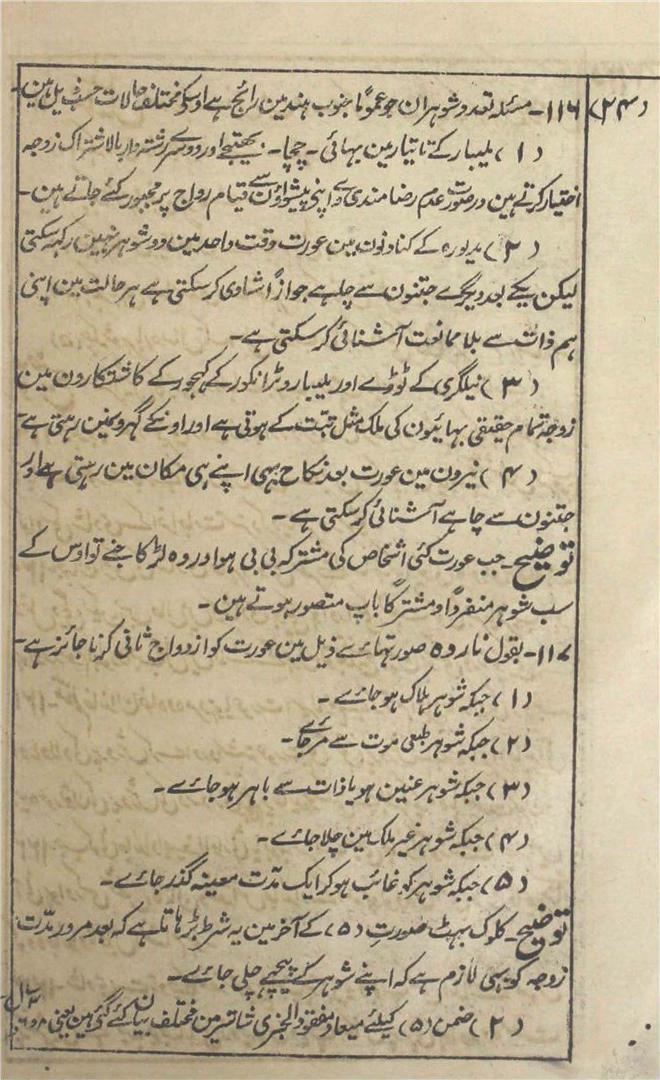 (۲۴)
۱۱۶ - مسئلہ تعدد شوہران جو عموماً جنوب ہند مین رائج ہے اوسکو مختلف حالات حسب ذیل ہین -
(۱) ملیبار کے تاتیار مین بہائی - چچا - بھتیجے اور دوسرے رشتہ دار بالاشتراک زوجہ
اختیار کرتے ہین در صورت عدم رضامندی وے اپنی پیشواؤن سے قیام رواج پر مجبور کئے جاتے ہین -
(۲) مدیورہ کے کناونون مین عورت وقت واحد مین دو شوہر نہین رکہہ سکتی
لیکن یکے بعد دیگرے جتنون سے چاہے جوازاً شادی کرسکتی ہے ہر حالت مین اپنی
ہم ذات سے بلا ممانعت آشنائی کرسکتی ہے -
(۳) نیلگری کے ٹوڈے اور ملیبار و ٹرانکور کے کہجور کے کاشتکارون مین
زوجہ تمام حقیقی بہائیون کی ملک مثل تبت کے ہوتی ہے اور اونکے گہرونمین رہتی ہے -
(۴) نیرون مین عورت بعد نکاح بہی اپنے ہی مکان مین رہتی ہے اور
جتنون سے چاہے آشنائی کرسکتی ہے -
توضیح - جب عورت کئی اشخاص کی مشترکہ بی بی ہو اور وہ لڑکا جنے تو اوس کے
سب شوہر منفرداً و مشترکاً باپ متصور ہوتے ہین -
۱۱۷ - بقول نارده صورتہائے ذیل مین عورت کو ازدواج ثانی کرنا جائز ہے -
(۱) جبکہ شوہر ہلاک ہو جائے -
(۲) جبکہ شوہر طبعی موت سے مرجائے -
(۳) جبکہ شوہر عنین ہو یا ذات سے باہر ہو جائے -
(۴) جبکہ شوہر غیر ملک مین چلا جائے -
(۵) جبکہ شوہر کو غائب ہو کر ایک مدت معینہ گذر جائے -
توضیح - کلوک بہٹ صورت (۵) کے آخر مین یہ شرط بڑہاتا ہے کہ بعد مرور مدت
زوجہ کو بہی لازم ہے کہ اپنے شوہر کے پیچہے چلی جائے -
(۲) ضمن (۵) کیلئے میعاد مفقود الخبری شاستر مین مختلف بیان کئے گئی ہین یعنی